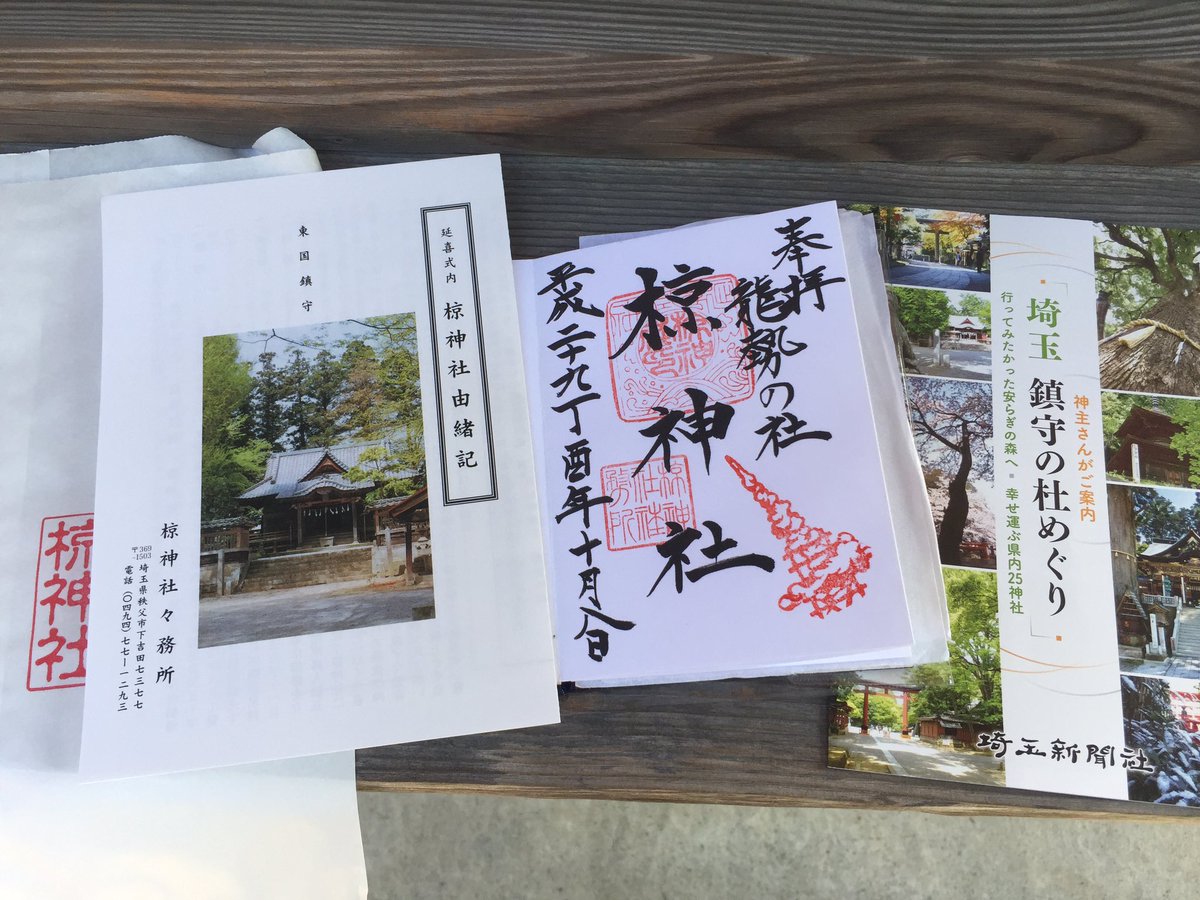 椋神社
延喜式内 椋神社由緒記
東国鎮守
椋神社々務所
〒369-1503 埼玉県秩父市下吉田七三七七
電話(〇四九四)七七ー一二九三
奉拝
龍勢の社
椋神社
平成二十九丁酉年十月八日
椋神社社務所
神主さんがご案内
埼玉 鎮守の杜めぐり
行ってみたかった安らぎの森へ 幸せ運ぶ県内25神社
埼玉新聞社